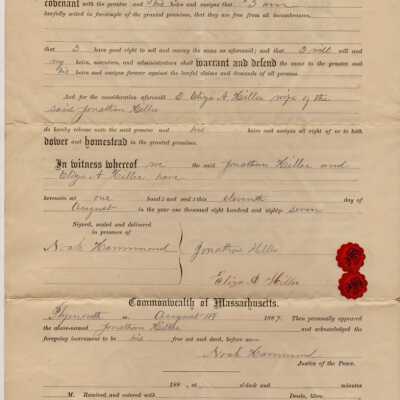 covenant with the grantee and his heirs and assigns that I am
lawfully seized in fee-simple of the granted premises, that they are free from all incumbrances,
that I have good right to sell and convey the same as aforesaid; and that I will and
my heirs, executors, and administrators shall warrant and defend the same to the grantee and
his heirs and assigns forever against the lawful claims and demands of all persons.
And for the consideration aforesaid I, Eliza A. Hiller wife of the
said Jonathan Hiller
do hereby release unto the said grantee and his heirs and assigns all right of or to both
dower and homestead in the granted premises.
In witness whereof we the said Jonathan Hiller and
Eliza A Hiller have
hereunto set our hands and seals this eleventh day of
August in the year one thousand eight hundred and eighty seven
Signed, sealed and delivered
in presence of
Noah Hammond
Jonathan Hiller
Eliza A Hiller
Commonwealth of Massachusetts.
Plymouth ss. August 11th 1887. Then personally appeared
the above-named Jonathan Hiller and acknowledged the
foregoing instrument to be his free act and deed, before me—
Noah Hammond
Justice of the Peace.
188 , at o'clock and minutes
M. Received and entered with Deeds, libro